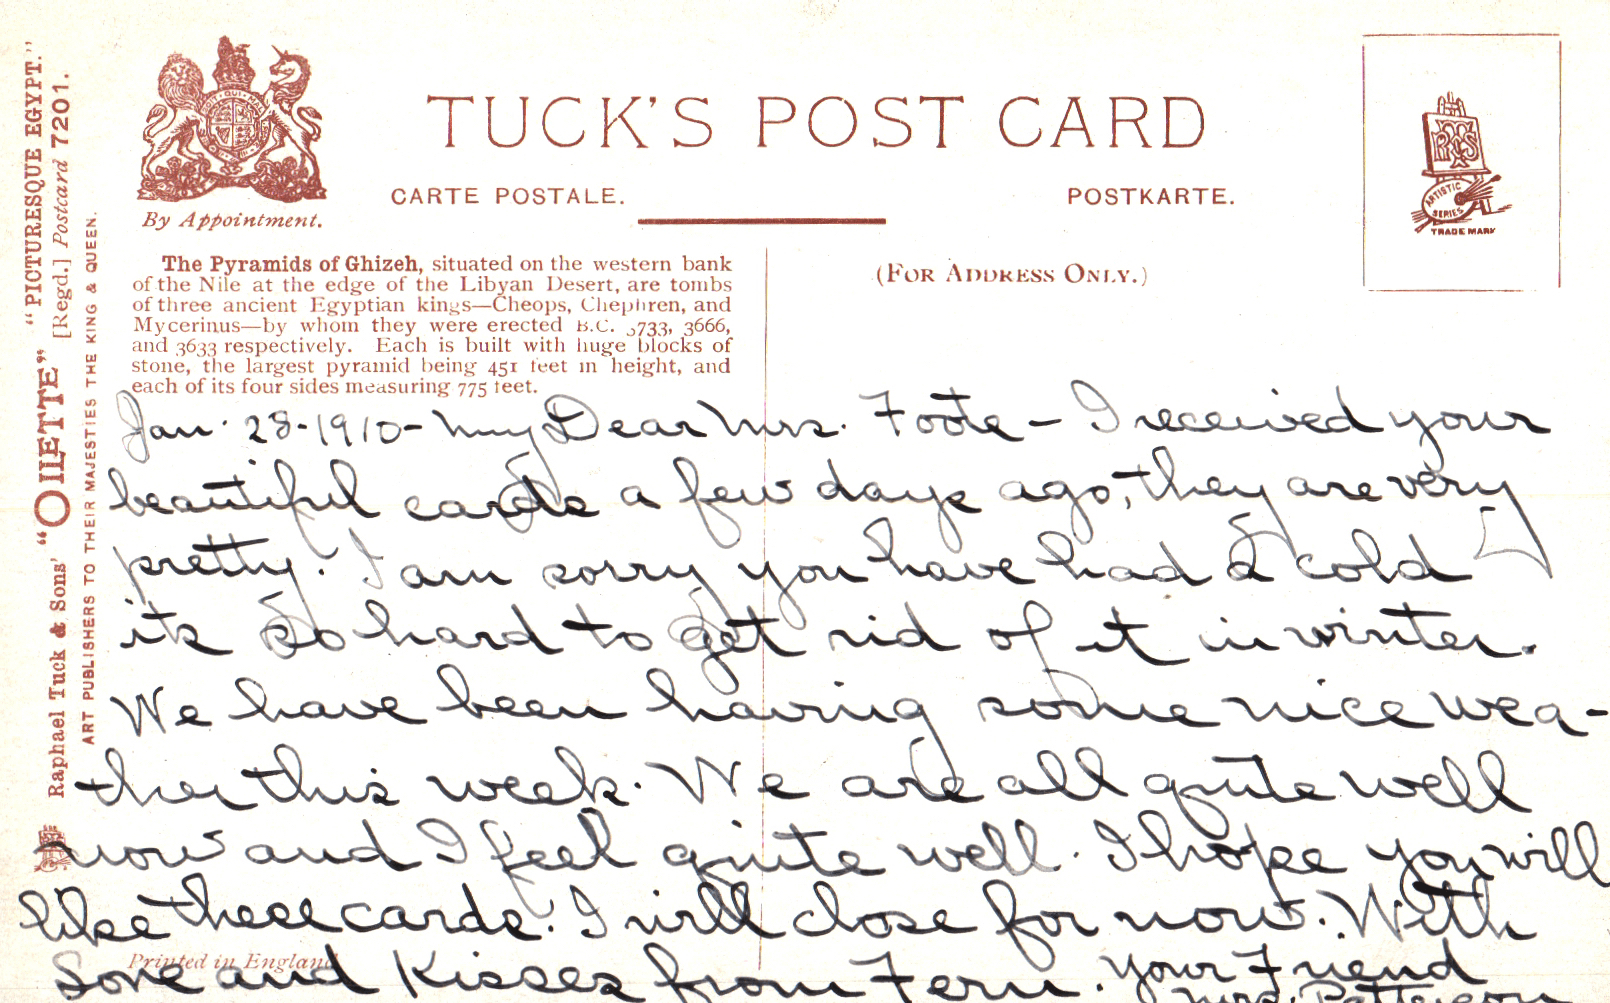 "PICTURESQUE EGYPT."
[Regd.] Postcard 7201.
Raphael Tuck & Sons' "OILETTE"
ART PUBLISHERS TO THEIR MAJESTIES THE KING & QUEEN.
By Appointment.
TUCK'S POST CARD
CARTE POSTALE.
POSTKARTE.
ARTISTIC
SERIES
TRADE MARK
(FOR ADDRESS ONLY.)
The Pyramids of Ghizeh, situated on the western bank
of the Nile at the edge of the Libyan Desert, are tombs
of three ancient Egyptian kings—Cheops, Chephren, and
Mycerinus—by whom they were erected B.C. 3733, 3666,
and 3633 respectively. Each is built with huge blocks of
stone, the largest pyramid being 451 feet in height, and
each of its four sides measuring 775 feet.
Jan. 28-1910- My Dear Mrs. Foote - I received your
beautiful cards a few days ago, they are very
pretty. I am sorry you have had a cold
its so hard to get rid of it in winter.
We have been having some nice wea-
ther this week. We are all quite well
now and I feel quite well. I hope you will
like these cards. I will close for now. With
Love and Kisses from Fern. Your Friend
Mrs. Patterson
Printed in England